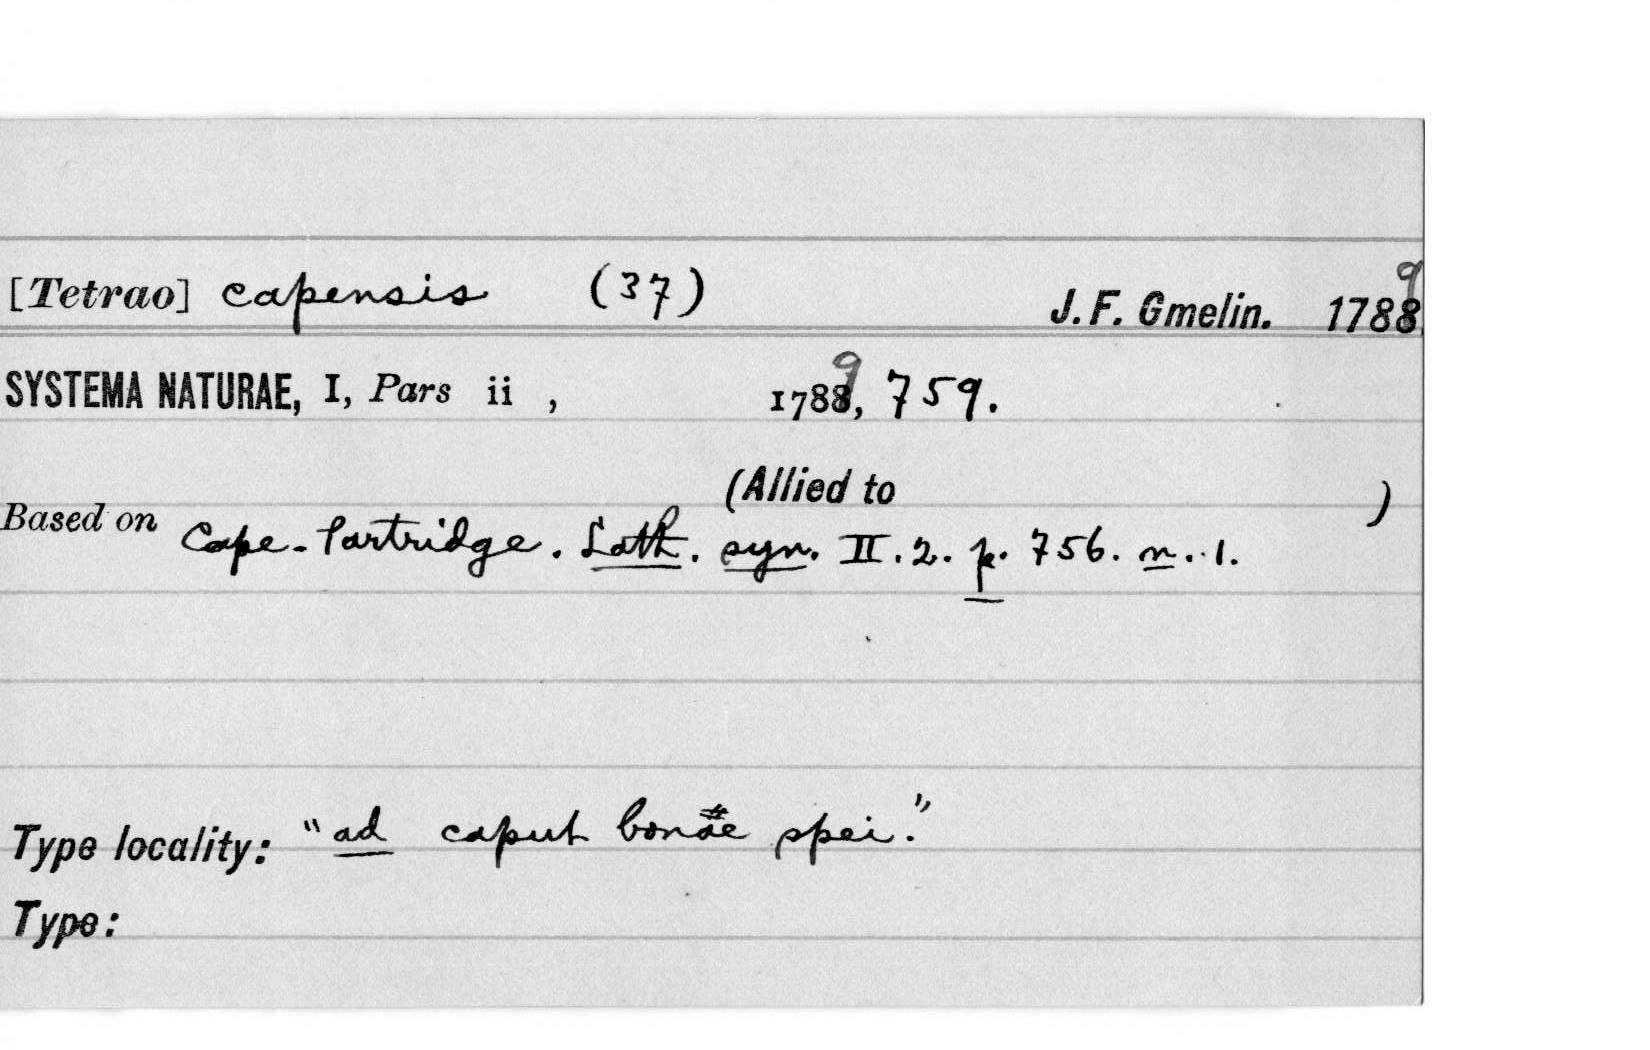 [Tetrao] capensis (37) J. F. Gmelin. 1789
SYSTEMA NATURAE, I, Pars ii , 1789, 759.
(Allied to )
Based on Cape-Partridge. Lath. syn. II. 2. p. 756. n. 1.
Type locality: "ad caput bonae spei."
Type: